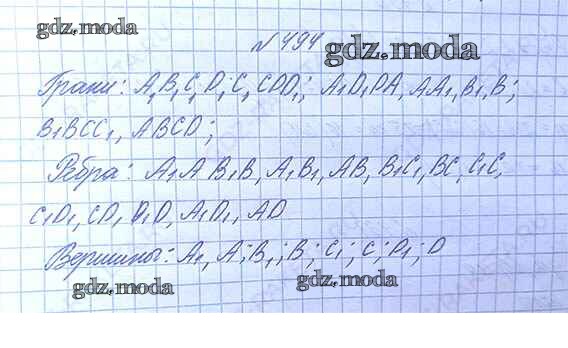 gdz.moda
№ 494
gdz.moda
Грани: A₁B₁C₁D₁; C₁CDD₁; A₁D₁DA, AA₁, B₁, B;
B₁BCC₁, ABCD;
Ребра: A₁A B₁B, A₁B₁, AB, B₁C₁, BC, C₁C,
C₁D₁, CD, D₁D, A₁D₁, AD
Вершины: A₁, A; B₁; B; C₁; C; D₁; D
gdz.moda
gdz.moda